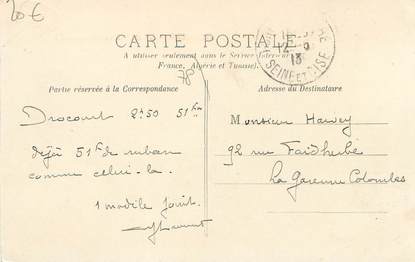 20 €
CARTE POSTALE
A utiliser seulement dans le Service Intérieur
France, Algérie et Tunisie).
78
SEINE ET OISE
12
13
Partie réservée à la Correspondance
Adresse du Destinataire
Drocourt 2h50 51km
déjà 51k de ruban
comme celui-là.
1 modèle joint.
Monsieur Harvey
92 rue Faidherbe
La Garenne Colombes